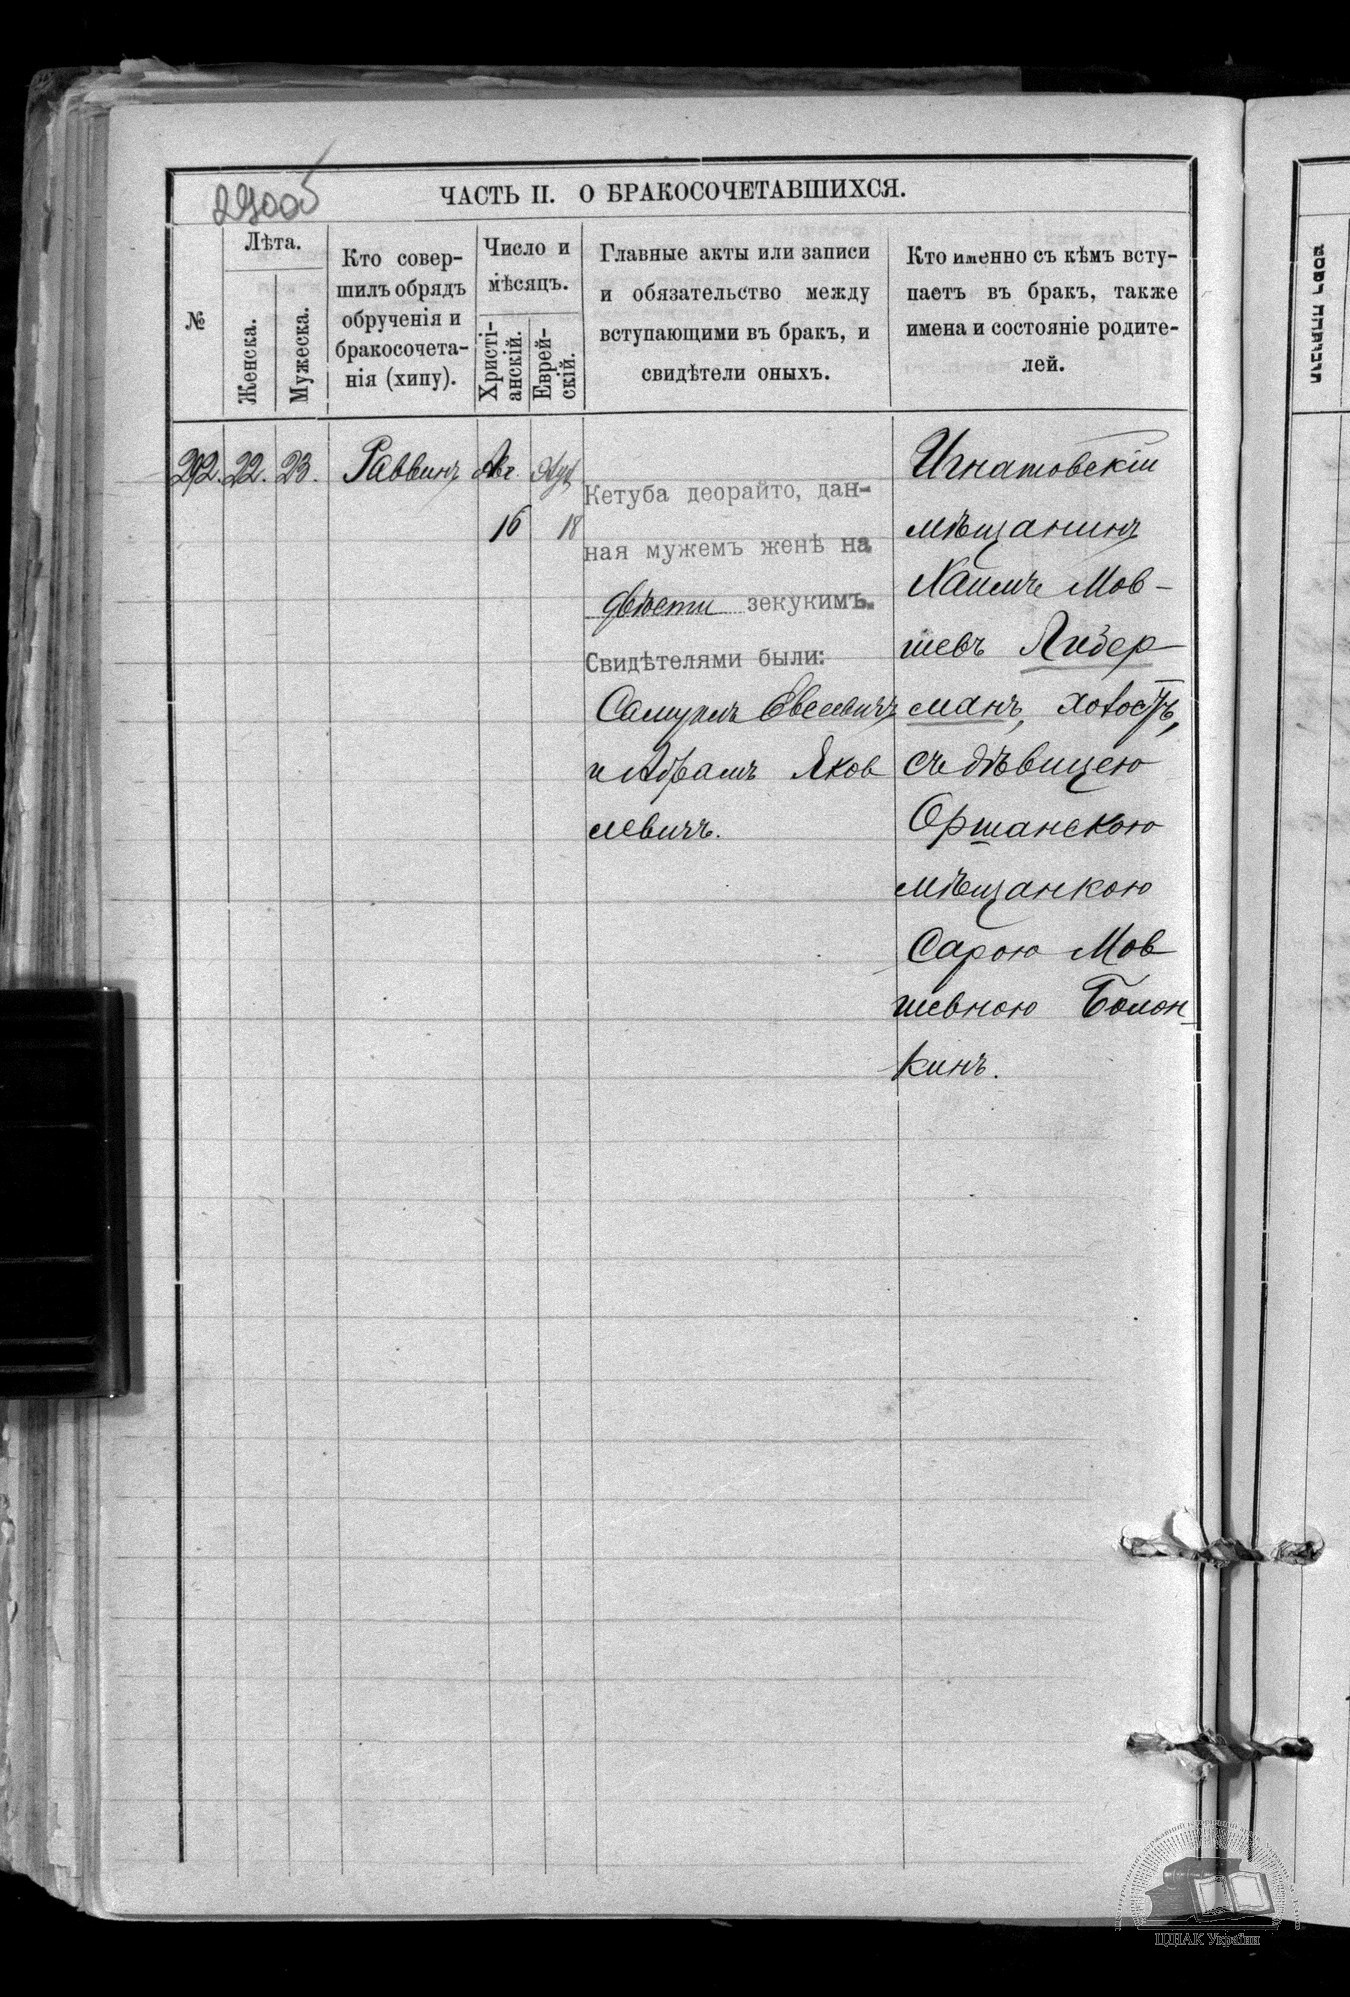 ЧАСТЬ II. О БРАКОСОЧЕТАВШИХСЯ.
№
Лѣта.
Женска.
Мужеска.
Кто совер-
шилъ обрядъ
обрученія и
бракосочета-
нія (хипу).
Число и
мѣсяцъ.
Христі-
анскій.
Еврей-
скій.
Главные акты или записи
и обязательство между
вступающими въ бракъ, и
свидѣтели оныхъ.
Кто именно съ кѣмъ всту-
паетъ въ бракъ, также
имена и состояніе родите-
лей.
292. 22. 23. Раввинъ Авг.
16 18
Кетуба деорайто, дан-
ная мужемъ женѣ на
двѣсти зекукимъ.
Свидѣтелями были:
Самуилъ Евсеевичъ
и Абрамъ Яков
левичъ.
Игнатовскій
мѣщанинъ
Хаимъ Мов-
шевъ Лидер-
манъ, холостъ,
съ дѣвицею
Оршанскою
мѣщанкою
Сарою Мов
шевною Болон-
кинъ.
ЦДІАК України